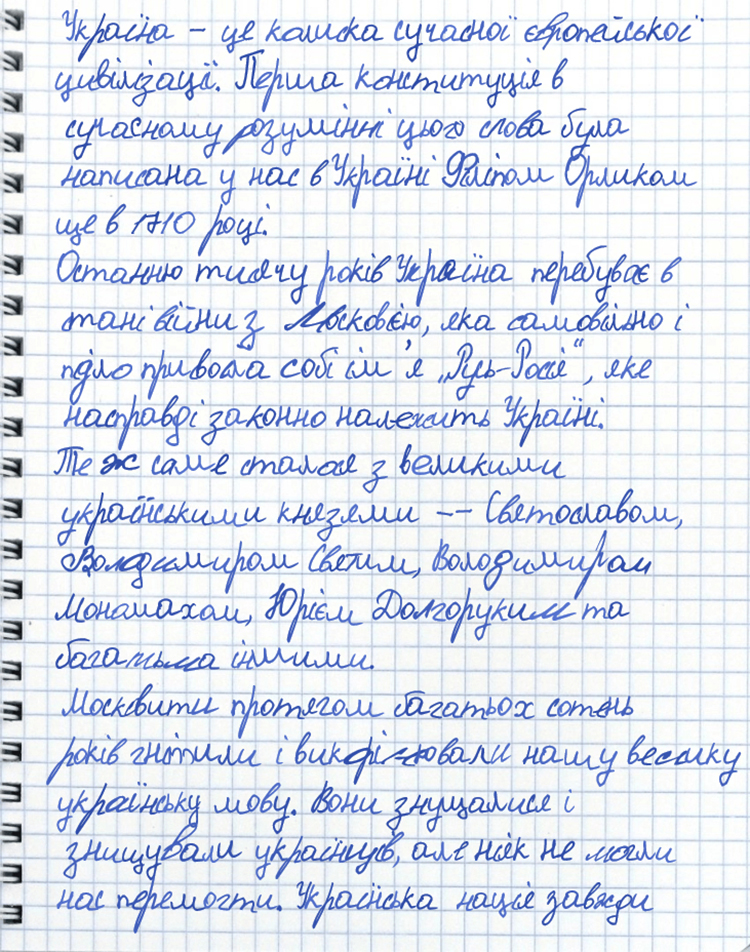 Україна – це колиска сучасної європейської
цивілізації. Перша конституція в
сучасному розумінні цього слова була
написана у нас в Україні Філіпом Орликом
ще в 1710 році.
Останню тисячу років Україна перебуває в
стані війни з Московією, яка самовільно і
підло привоїла собі ім'я „Русь-Росія“, яке
насправді законно належить Україні.
Те ж саме сталося з великими
українськими князями -- Святославом,
Володимиром Святим, Володимиром
Мономахом, Юрієм Долгоруким та
багатьма іншими.
Москвити протягом багатьох сотень
років гнітили і викорінювали нашу велику
українську мову. Вони знущалися і
знищували українців, але ніяк не могли
нас перемогти. Українська нація завжди